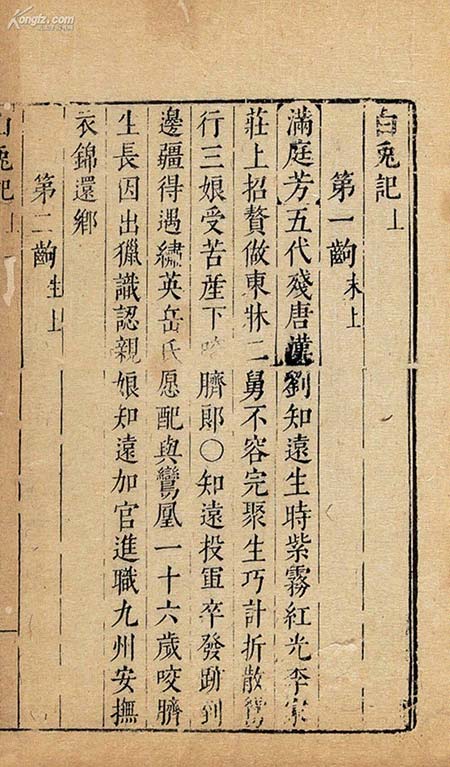 Kongfz.com
白兎記上
第一齣 末上
滿庭芳 五代殘唐漢劉知遠生時紫霧紅光李家
莊上招贅做東牀二舅不容完聚生巧計折散鴛
行三娘受苦産下咬臍郎〇知遠投軍卒發跡到
邊疆得遇繡英岳氏愿配與鸞凰一十六歲咬臍
生長因出獵識認親娘知遠加官進職九州安撫
衣錦還鄉
第二齣 生上
兎記上